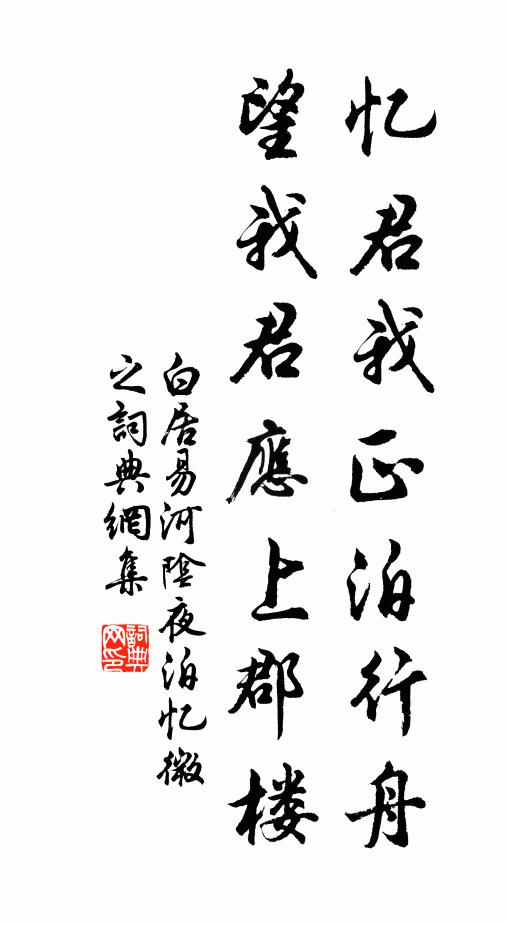 忆君我正泊行舟
望我君應上郡楼
白居易河陰夜泊忆微
之詞典網集
詞典网印